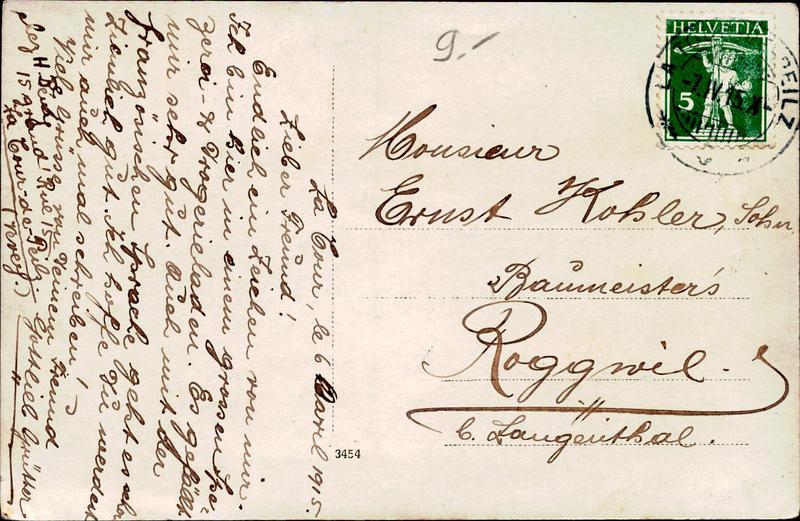 La Tour, le 6 avril 1915.
Lieber Freund!
Endlich ein Zeichen von mir.
Ich bin hier in einem grossen Spe-
zerei- & Drogerieladen. Es gefällt
mir sehr gut. Auch mit der
französischen Sprache geht es schon
ziemlich gut. Ich hoffe Du werdest
mir auch mal schreiben!
Viele Grüsse von Deinem Freund
Gottlieb
15 grand' Rue 15
La Tour-de-Peilz
(Vevey.)
9.-
HELVETIA
5
Monsieur
Ernst Kohler, Sohn,
Baumeister's
Roggwil.
b. Langenthal.
3454